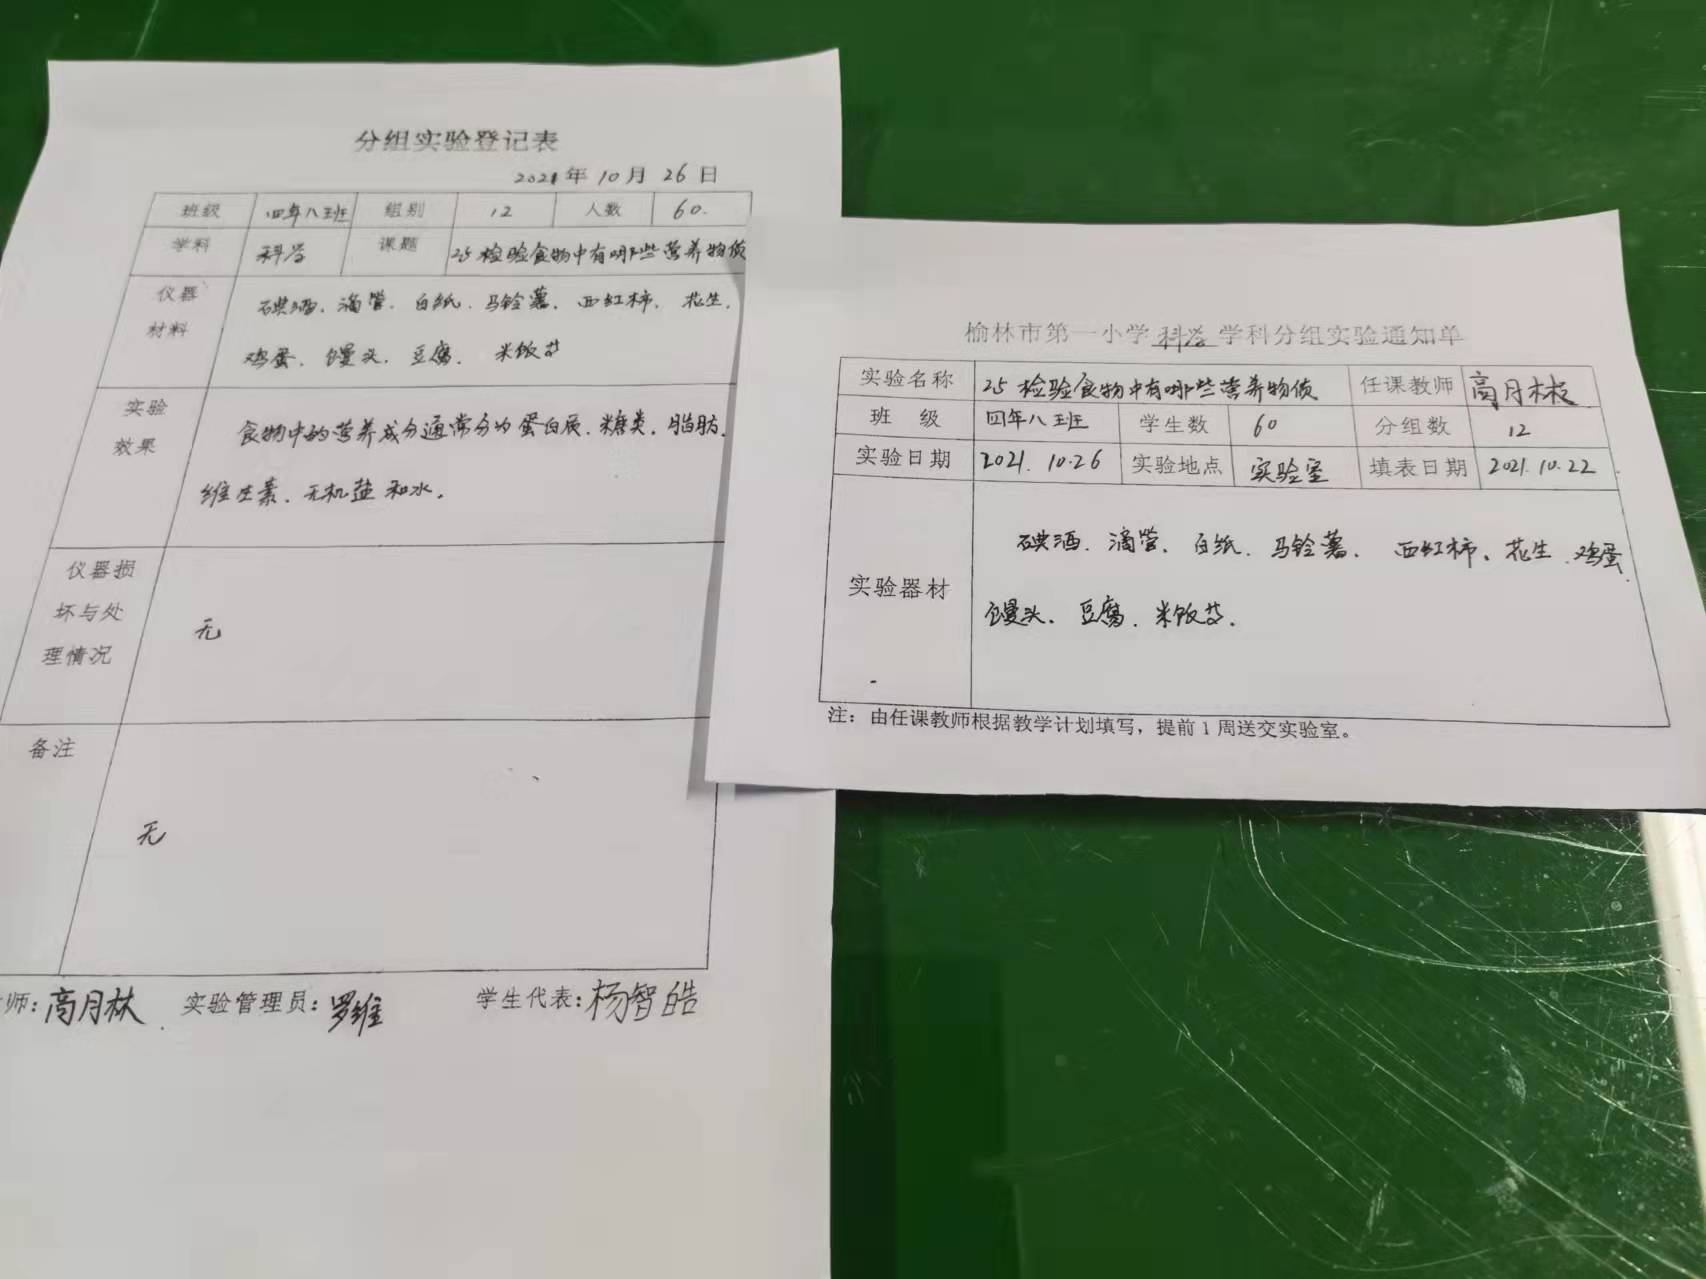 分组实验登记表
2021年10月26日
班级 四年八班 组别 12 人数 60.
学科 科学 课题 25 检验食物中有哪些营养物质
仪器材料 碘酒、滴管、白纸、马铃薯、西红柿、花生、
鸡蛋、馒头、豆腐、米饭等
实验效果 食物中的营养成分通常分为蛋白质、糖类、脂肪、
维生素、无机盐和水。
仪器损坏与处理情况 无
备注 无
师:高月林 实验管理员:罗维 学生代表:杨智皓
榆林市第一小学科学学科分组实验通知单
实验名称 25 检验食物中有哪些营养物质 任课教师 高月林
班 级 四年八班 学生数 60 分组数 12
实验日期 2021.10.26 实验地点 实验室 填表日期 2021.10.22
实验器材 碘酒、滴管、白纸、马铃薯、西红柿、花生、鸡蛋、
馒头、豆腐、米饭等。
注：由任课教师根据教学计划填写，提前1周送交实验室。